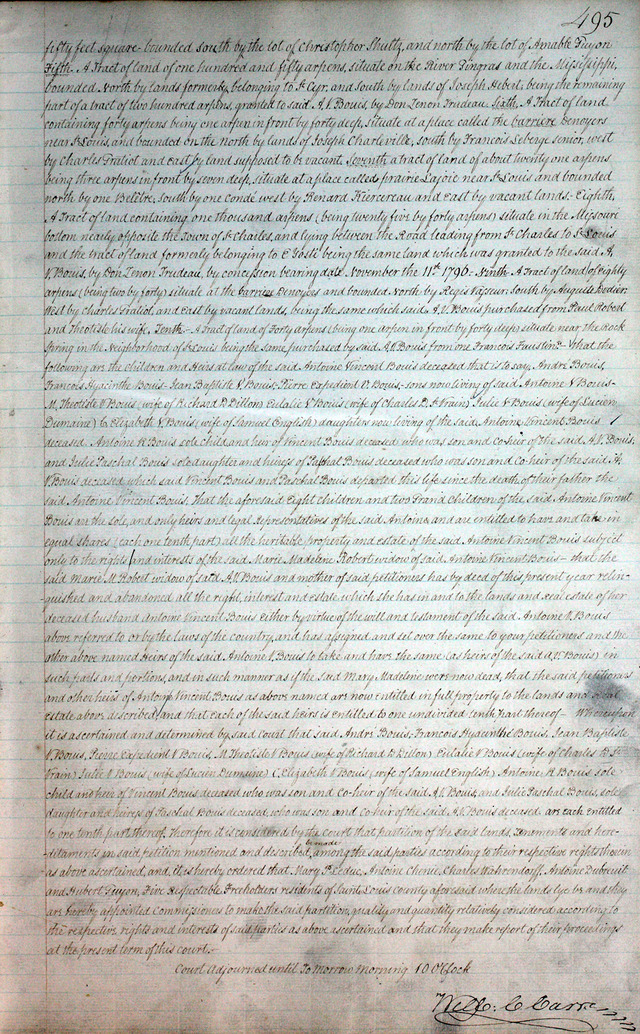 495
fifty feet square - bounded south by the lot of Christopher Shultz, and north by the lot of Amable Guyon
Fifth. A Tract of land of one hundred and fifty arpens, situate on the River Gingras and the Missisippi,
bounded North by lands formerly belonging to St Cyr, and south by lands of Joseph Hebert, being the remaining
part of a tract of two hundred arpens, granted to said A. V. Bouis, by Don Zenon Trudeau. Sixth. A Tract of land
containing forty arpens being one arpen in front by forty deep, situate at a place called the barriere Denoyers
near St Louis, and bounded on the north by lands of Joseph Charleville, south by Francois Leberge senior, west
by Charles Gratiot and east by land supposed to be vacant. Seventh a tract of land of about twenty one arpens
being three arpens in front by seven deep, situate at a place called prairie Lajoie near St Louis and bounded
north by one Belcire, south by one Condé west by Renard Kiercereau and East by vacant lands - Eighth,
A Tract of land containing one thousand arpens (being twenty five by forty arpens) situate in the Missouri
bottom nearly opposite the Town of St Charles, and lying between the Road leading from St Charles to St Louis
and the tract of land formerly belonging to E Yosti being the same land which was granted to the said A.
V. Bouis, by Don Zenon Trudeau, by concession bearing date November the 11th 1796 - Ninth. A Tract of land of Eighty
arpens (being two by forty) situate at the barriere Denoyers and bounded North by Regis Vasseur, South by Auguste Dodier
West by Charles Gratiot, and East by vacant lands, being the same which said A. V. Bouis purchased from Paul Robert
and Theotiste his wife. Tenth - A Tract of land of Forty arpens (being one arpen in front by forty deep) situate near the Rock
Spring in the Neighborhood of St Louis being the same purchased by said A. V. Bouis from one Francois Faustin - That the
following are the children and Heirs at law of the said Antoine Vincent Bouis deceased that is to say, André Bouis,
Francois Hyacinthe Bouis - Jean Baptiste V Bouis, Pierre Expedient V. Bouis, sons now living of said Antoine V Bouis -
M. Theotiste V Bouis (wife of Richard P Dillon) Eulalie V Bouis (wife of Charles D. St Vrain) Julie V Bouis (wife of Lucien
Dumaine) & Elizabeth V Bouis, (wife of Samuel English) daughters now living of the said Antoine Vincent Bouis
deceased. Antoine R Bouis sole child and heir of Vincent Bouis deceased who was son and co-heir of the said A. V. Bouis,
and Julie Paschal Bouis sole daughter and heiress of Paschal Bouis deceased who was son and Co-heir of the said A.
V. Bouis deceased which said Vincent Bouis and Paschal Bouis departed this life since the death of their father the
said Antoine Vincent Bouis. That the aforesaid Eight children and two Grand Children of the said Antoine Vincent
Bouis are the sole, and only heirs and legal representatives of the said Antoine and are entitled to have and take in
equal shares (each one tenth part) all the heritable property and estate of the said Antoine Vincent Bouis subject
only to the rights and interests of the said Marie Madelene Robert widow of said Antoine Vincent Bouis - that the
said Marie M Robert widow of said A V Bouis and mother of said petitioners has by deed of this present year relin-
quished and abandoned all the right, interest and estate which she has in and to the lands and real estate of her
deceased husband Antoine Vincent Bouis either by virtue of the will and testament of the said Antoine V. Bouis
above referred to or by the laws of the country, and has assigned and set over the same to your petitioners and the
other above named heirs of the said Antoine V. Bouis to take and have the same (as heirs of the said A. V. Bouis) in
such parts and portions, and in such manner as if the said Mary Madeline were now dead, that the said petitioners
and other heirs of Antoine Vincent Bouis as above named are now entitled in full property to the lands and real
estate above described, and that each of the said heirs is entitled to one undivided tenth part thereof - Whereupon
it is ascertained and determined by said Court that said André Bouis, Francois Hyacinthe Bouis, Jean Baptiste
V. Bouis, Pierre Expedient V Bouis, M Theotiste V Bouis (wife of Richard P Dillon) Eulalie V Bouis (wife of Charles D. St
Vrain) Julie V Bouis (wife of Lucien Dumaine) Elizabeth V Bouis (wife of Samuel English) Antoine R Bouis sole
child and heir of Vincent Bouis deceased who was son and Co-heir of the said A. V. Bouis, and Julie Paschal Bouis, sole
daughter and heiress of Paschal Bouis deceased, who was son and Co-heir of the said A. V. Bouis deceased are each entitled
to one tenth part thereof. Therefore it is considered by the court that partition of the said lands, tenements and here-
be made
ditaments in said petition mentioned and described, among the said parties according to their respective rights therein
as above ascertained, and it is hereby ordered that Mary P. Leduc, Antoine Chenie, Charles Wahrendorff, Antoine Dubreuil
and Hubert Guyon, Five Respectable Freeholders residents of Saint Louis County aforesaid where the lands lye be and they
are hereby appointed Commissioners to make the said partition, quality and quantity relatively considered according to
the respective rights and interests of said parties as above ascertained and that they make report of their proceedings
at the present term of this court. -
Court adjourned until Tomorrow morning 10 O'Clock
Wm C Carr